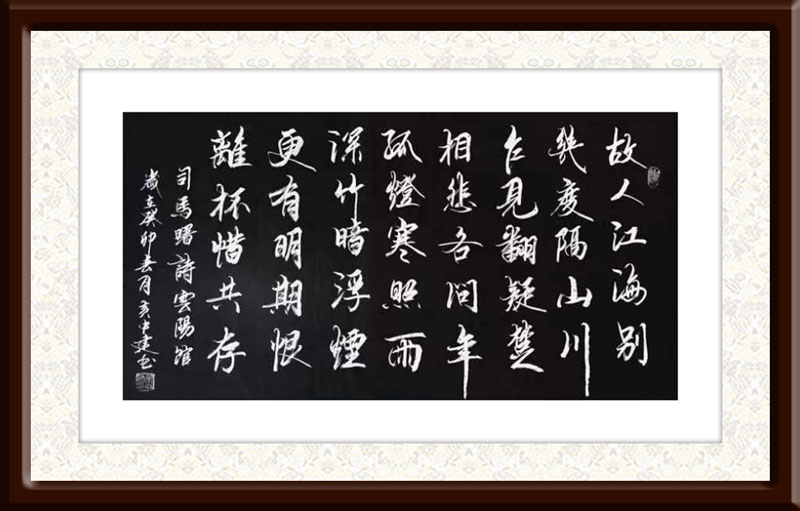 故人江海別
幾度隔山川
乍見翻疑梦
相悲各問年
孤燈寒照雨
深竹暗浮煙
更有明期恨
離杯惜共存
司馬曙詩雲陽館
歲在癸卯春月中建書